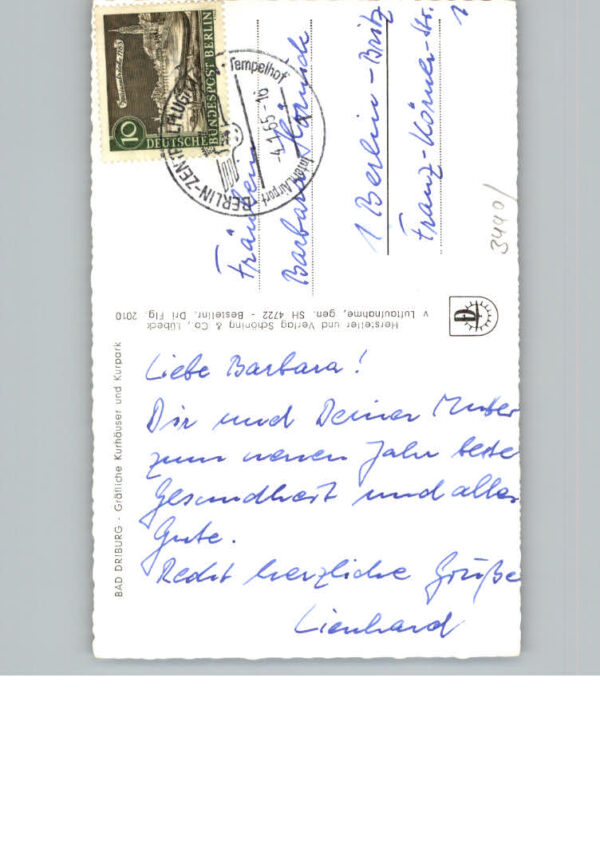 10
DEUTSCHE
BUNDESPOST BERLIN
Tempelhof
4.1.65-16
Intern. Airport
Fräulein
Barbara
1 Berlin-Britz
Franz-Körner-Str.
1
3440/
Hersteller und Verlag Schöning & Co., Lübeck
v Luftaufnahme, gen. SH 4722 - Bestellnr. Dri Flg 2010
BAD DRIBURG - Gräfliche Kurhäuser und Kurpark
Liebe Barbara!
Dir und Deiner Mutter
zum neuen Jahr beste
Gesundheit und alles
Gute.
Recht herzliche Grüße
Lienhard